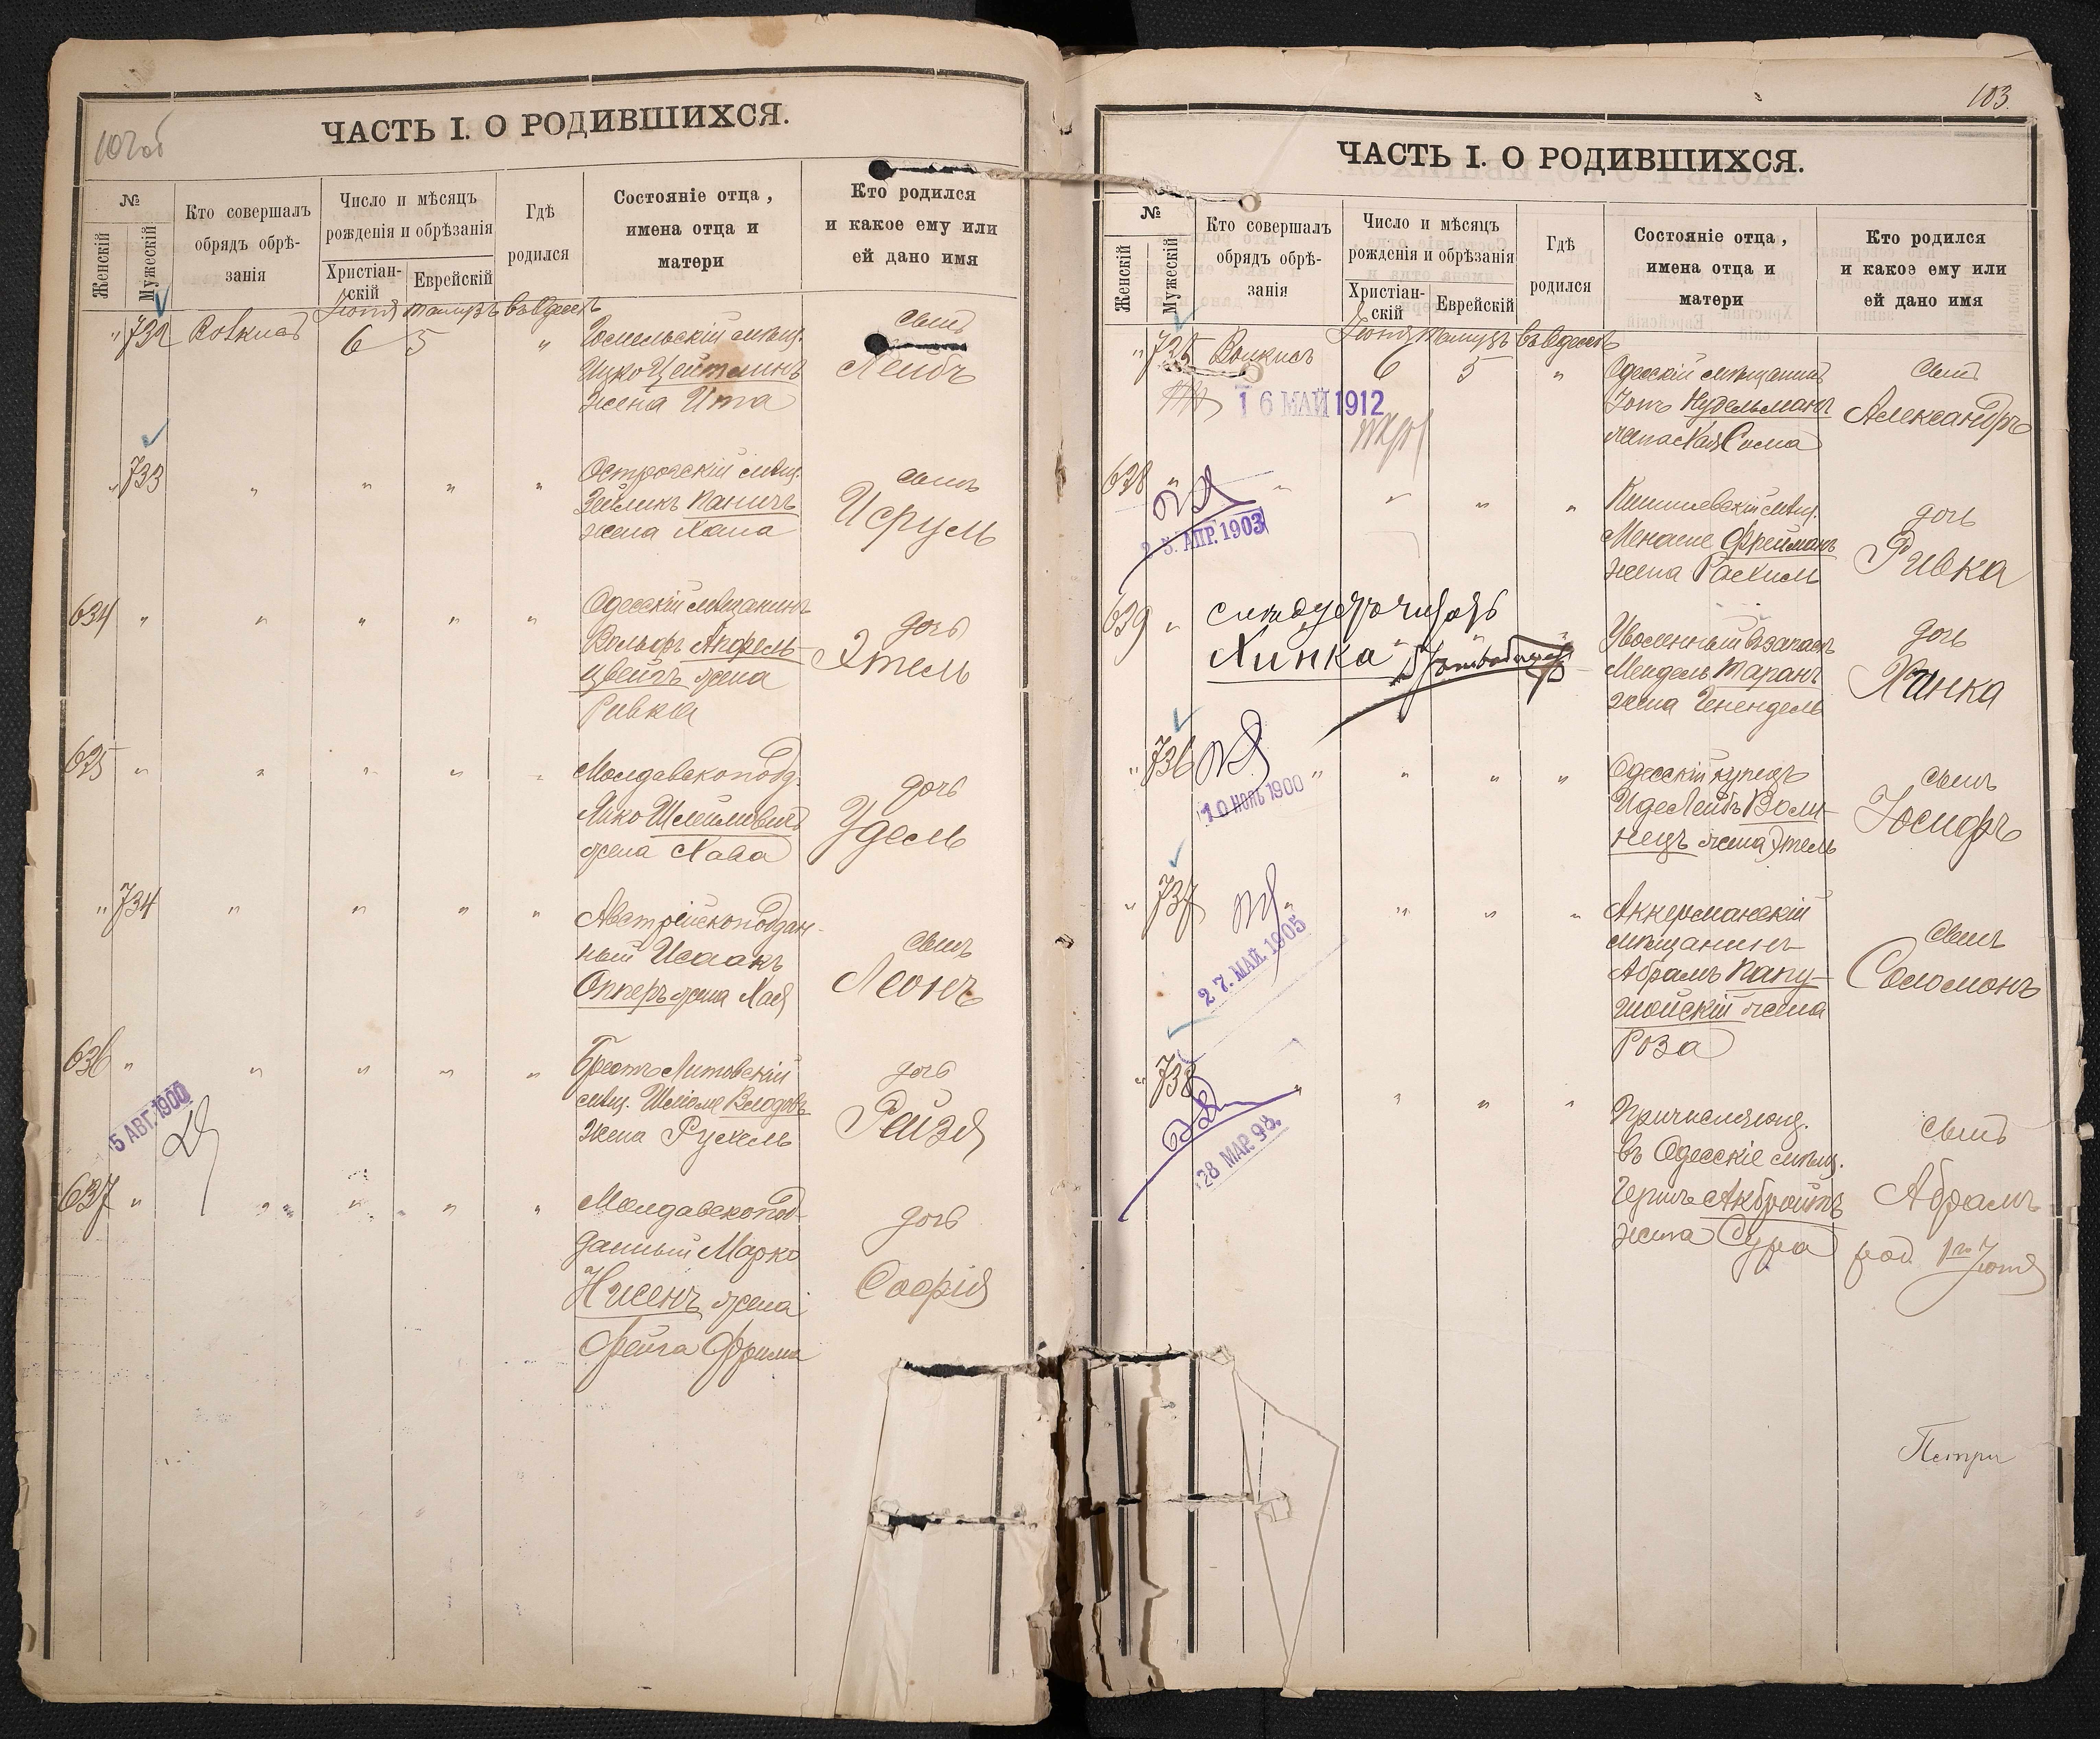 102об
ЧАСТЬ I. О РОДИВШИХСЯ.
№
Женскій
Мужескій
Кто совершалъ
обрядъ обрѣ-
занія
Число и мѣсяцъ
рожденія и обрѣзанія
Христіан-
скій
Еврейскій
Гдѣ
родился
Состояніе отца,
имена отца и
матери
Кто родился
и какое ему или
ей дано имя
Іюня Тамузъ въ Одессѣ
" 732
6 5 "
Гомельскій мѣщ.
Ицко Цейтлинъ
жена Ита
сынъ
Лейбъ
" 733 " " " "
Острогскій мѣщ.
Зейликъ Каничъ
жена Хана
сынъ
Исруль
634 " " " " " "
Одесскій мѣщанинъ
Вольфъ Апфель-
цвейгъ жена
Ривка
дочь
Этель
635 " " " " " "
Молдавскопод.
жена Хава
дочь
Удель
" 734 " " " "
Австрійскоподдан-
ный Исаакъ
Опперъ жена Хая
сынъ
Леонъ
636 " " " " " "
Брестъ Литовскій
мѣщ. Шлёме
жена Рухель
дочь
Рейзя
5 АВГ. 1900
637 " " " " "
Молдавскопод-
данный Марко
Нисенъ жена
Фейга Фрима
дочь
Софія
103.
ЧАСТЬ I. О РОДИВШИХСЯ.
№
Женскій
Мужескій
Кто совершалъ
обрядъ обрѣ-
занія
Число и мѣсяцъ
рожденія и обрѣзанія
Христіан-
скій
Еврейскій
Гдѣ
родился
Состояніе отца,
имена отца и
матери
Кто родился
и какое ему или
ей дано имя
Іюня Тамузъ въ Одессѣ
" 735
6 5 "
Одесскій мѣщанинъ
Нудельманъ
жена Хая Сима
сынъ
Александръ
16 МАЙ 1912
638 " " " " "
Кишиневскій мѣщ.
Менаше Фрейманъ
жена Рахиль
дочь
Ривка
2 3. АПР. 1903
639 " слѣдуетъ читать
"Хинка"
Уволенный въ запасъ
Мендель Таранъ
жена Ененд​ель
дочь
Хинка
" 736 " " " "
Одесскій купецъ
Иде Лейбъ Воли-
нецъ жена Этель
сынъ
Іосифъ
10 НОЯБ 1900
" 737 " " " "
Аккерманскій
мѣщанинъ
Абрамъ Капу-
шойскій жена
Роза
сынъ
Соломонъ
2 7. МАЙ. 1905
" 738 " " " "
Причисляющ.
въ Одесскіе мѣщ.
Гершъ Акбройтъ
жена Сура
сынъ
Абрамъ
род. 1го Іюня
28 МАР. 98.